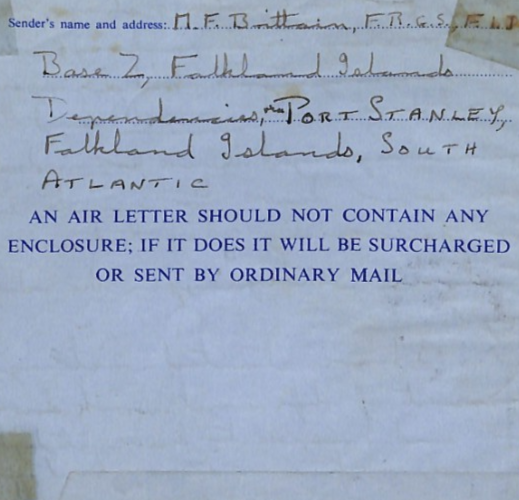 Sender's name and address: M. F. Brittain, F.R.G.S., F.L.S
Base Z, Falkland Islands
Dependencies, via PORT STANLEY,
Falkland Islands, SOUTH
ATLANTIC
AN AIR LETTER SHOULD NOT CONTAIN ANY
ENCLOSURE; IF IT DOES IT WILL BE SURCHARGED
OR SENT BY ORDINARY MAIL